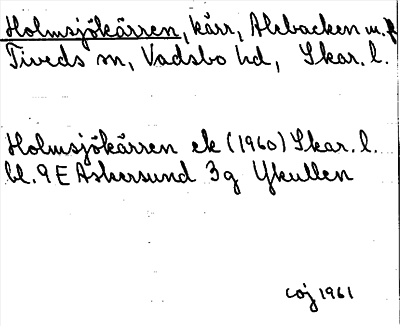 Holmsjökärren, kärr, Alebacken m.fl
Tiveds sn, Vadsbo hd, Skar. l.
Holmsjökärren ek (1960) Skar. l.
bl. 9E Askersund 3g Ykullen
coj 1961